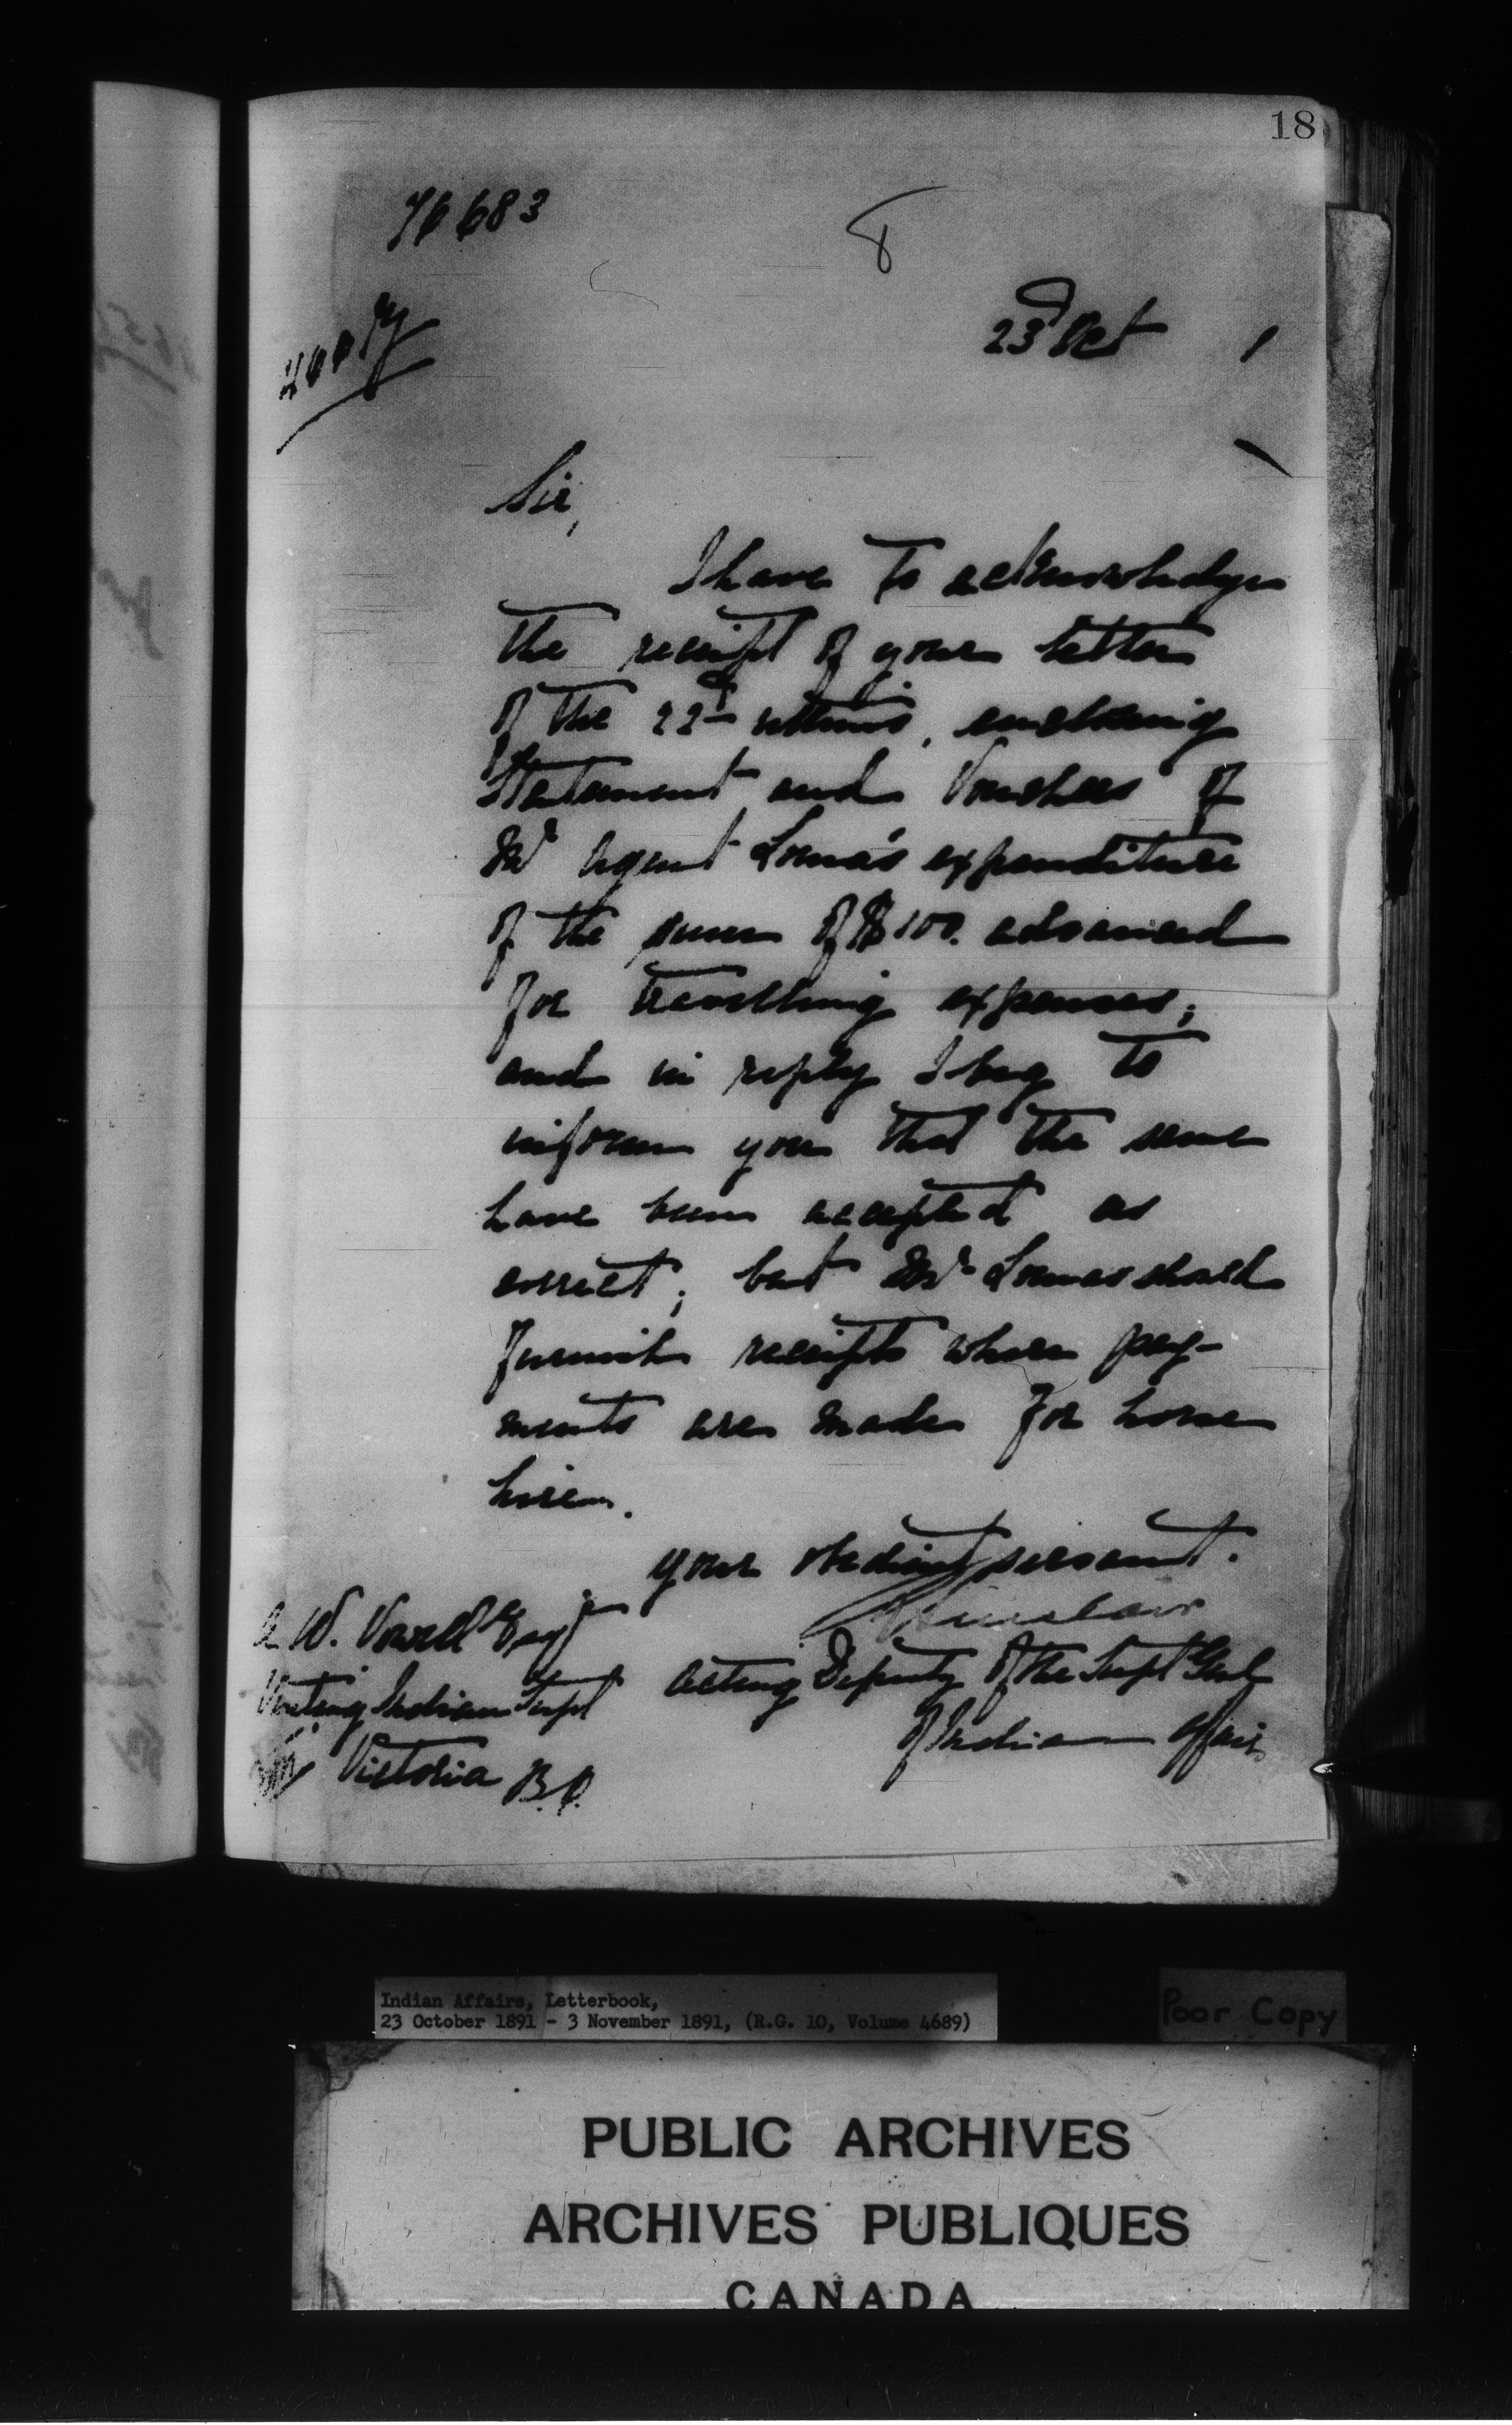 18
76683
8
23d Oct 1
Sir,
I have to acknowledge
the receipt of your letter
of the 22d ultimo, enclosing
Statement and Vouchers of
Mr Agent Lomas's expenditure
of the sum of $100. advanced
for travelling expenses;
and in reply I beg to
inform you that the same
have been accepted as
correct; but Mr Lomas should
furnish receipts when pay-
ments are made for horse
hire.
Your obedient servant.
Sinclair
A. W. Vowell Esqr
Acting Deputy of the Supt Genl
Visiting Indian Supt
of Indian Affairs
Victoria B.C.
Indian Affairs, Letterbook,
23 October 1891 - 3 November 1891, (R.G. 10, Volume 4689)
Poor Copy
PUBLIC ARCHIVES
ARCHIVES PUBLIQUES
CANADA